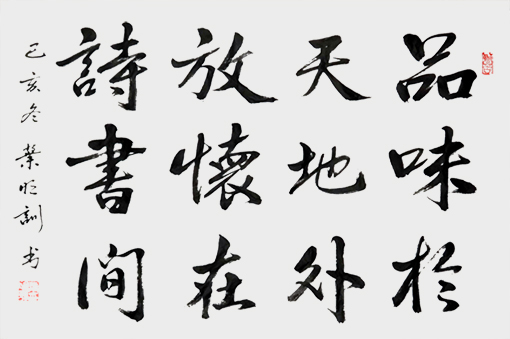 品味於
天地外
放懷在
詩書間
己亥冬 葉明訓 书